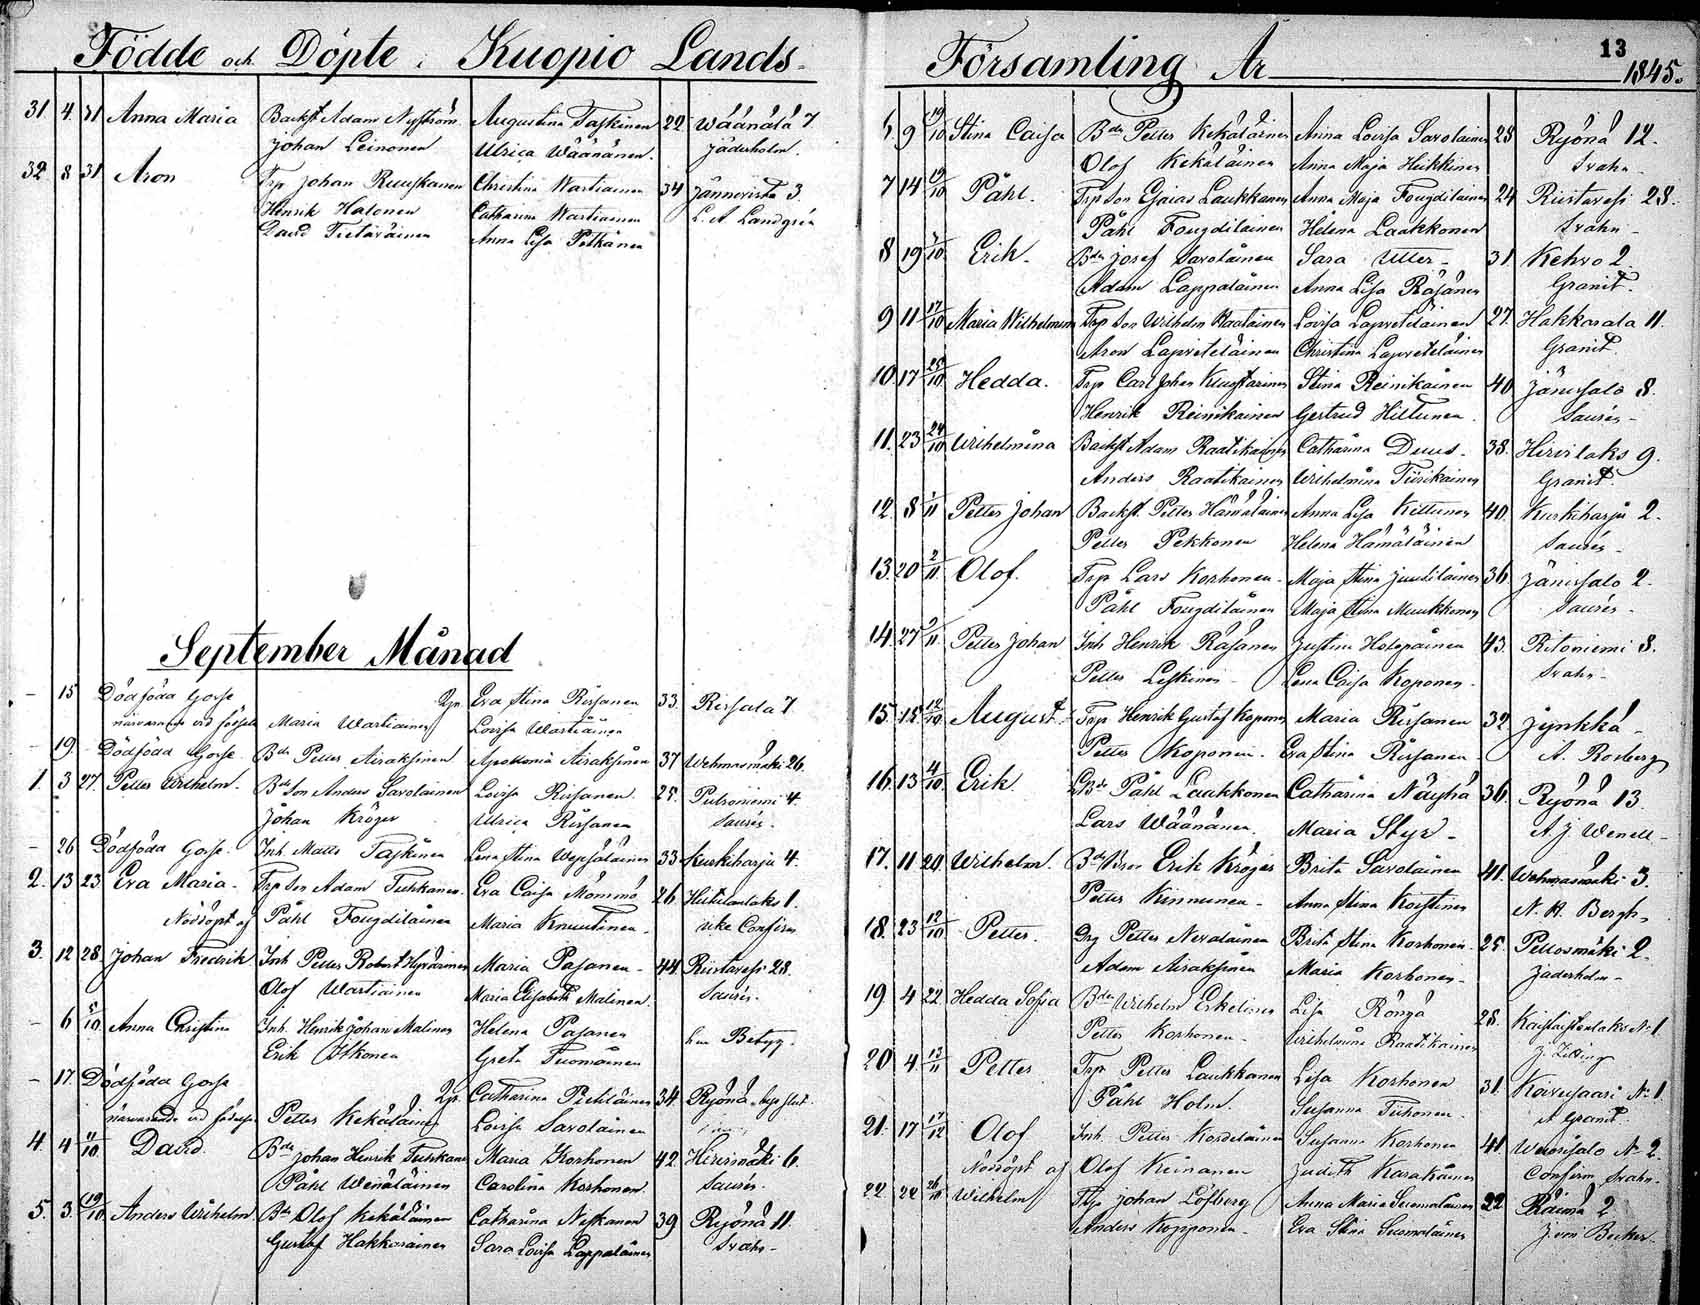 Födde och Döpte i Kuopio Lands-
31 4 31 Anna Maria Backst Adam Nyström Augustina Taskinen 22 Wäänälä 7
Johan Leinonen Ulrica Wäänänen. Jäderholm.
32 8 31 Aron Trp Johan Ruuskanen Christina Wartiainen 34 Jännevirta 3.
Henrik Halonen Catharina Wartiainen L. A Landgrén
David Tietäväinen Anna Lisa Pitkänen
September Månad
- 15 Dödföda Gosse Eva Stina Rissanen 33 Rissala 7
närvarande vid födseln Maria Wartiainen Lovisa Wartiainen
- 19. Dödföda Gosse Bde Petter Airaksinen Apollonia Airaksinen 37 Wehmasmäki 26.
1. 3 27. Petter Wilhelm. Bde Son Anders Savolainen Lovisa Rissanen. 25. Putroniemi 4.
Johan Kröger Ulrica Rissanen Saurén.
- 26 Dödföda Gosse. Inh. Matts Taskinen Lena Stina Wepsäläinen 33 Kurkiharju 4.
2. 13 23. Eva Maria. Trp Son Adam Tuhkanen. Eva Caisa Mömmö 26 Hutilanlaks 1.
Nöddöpt af Påhl Fougdiläinen Maria Knuutinen.
3. 12 28. Johan Fredrik Inh Petter Robert Hyvärinen Maria Pasanen 44 Riistavesi 28.
Olof Wartiainen Maria Elisabeth Malinen. Saurén.
- 6 5/10 Anna Christina Inh. Henrik Johan Malinen Helena Pasanen Betyg.
Erik Itkonen Greta Tuomainen
- 17. Dödföda Gosse Catharina Pirtiläinen 34 Ryönä
närvarande vid födseln. Petter Kekäläinen Lovisa Savolainen
4 4 11/10 David. Bde Johan Henrik Tuhkanen Maria Korhonen 42 Hirvimäki 6.
Påhl Wenäläinen Carolina Korhonen. Saurén.
5. 3. 19/10 Anders Wilhelm Bde Olof Kekäläinen Catharina Niskanen 39 Ryönä 11.
Gustaf Hakkarainen Sara Lovisa Lappalainen Svahn-
Församling År 13 1845.
6. 9 19/10 Stina Caisa Bde Petter Kekäläinen Anna Lovisa Savolainen 28 Ryönä 12.
Olof Kekäläinen Anna Maja Heikkinen Svahn.
7 14 19/10 Påhl. Trp Son Esaias Laukkanen Anna Maja Fougdilainen 24 Riistavesi 28.
Påhl Fougdilainen Helena Laakkonen Svahn-
8 19 /10 Erik- Bde Josef Savolainen Sara Utter- 31 Kehvo 2
Adam Lappalainen Anna Lisa Räsänen Granit.
9 11 17/10 Maria Wilhelmina Trp Son Wilhelm Raatainen Lovisa Lapveteläinen 27. Hakkarala 11.
Aron Lapveteläinen Christina Lapveteläinen Granit.
10. 17 25/10 Hedda. Trp Carl Johan Kuustarinen Stina Reinikainen 40 Jänissalo 8.
Henrik Reinikainen Gertrud Hiltunen. Saurén-
11. 23 24/10 Wilhelmina Backst Adam Raatikainen Catharina Duus- 38. Hirvilaks 9.
Anders Raatikainen Wilhelmina Tiirikainen Granit.
12. 8 1/11 Petter Johan Backst. Petter Hämäläinen Anna Lisa Kettunen 40. Kurkiharju 2.
Petter Pekkonen Helena Hämäläinen Saurén-
13. 20 2/11 Olof. Trp Lars Korhonen- Maja Stina Juutilainen 36 Jänissalo 2.
Påhl Fougdilainen Maja Stina Muukkonen Saurén-
14. 27 /11 Petter Johan Inh Henrik Räsänen Justina Holopainen 43. Ritoniemi 8.
Petter Leskinen- Lena Caisa Koponen. Svahn-
15. 15 12/10 August Trp Henrik Gustaf Koponen Maria Rissanen 32 Jynkkä-
Petter Koponen. Eva Stina Rissanen. A. Rosberg
16. 13 4/10 Erik Påhl Laukkonen Catharina Näyhä 36. Ryönä 13.
Lars Wäänänen. Maria Styr- A. J Wenell-
17. 11 20. Wilhelm. Erik Kröger Brita Savolainen 41. Wehmasmäki 3.
Petter Kinnunen- Anna Stina Koistinen N. A. Bergh-
18. 23 12/10 Petter. Drg Petter Nevalainen Brita Stina Korhonen- 25. Pellosmäki 2.
Adam Airaksinen Maria Korhonen- Jäderholm-
19 4 22 Hedda Sofia Bde Wilhelm Eskelinen Lisa Rönqä 28. No 1
Petter Korhonen- Wilhelmina Raatikainen J. Zilling
20 4 13/11 Petter Trp Petter Laukkanen Lisa Korhonen 31. Koivusaari No 1
Påhl Holm. Susanna Tiihonen. A Granit.
21. 17 17/12 Olof Inh. Petter Kordelainen Susanna Korhonen 41. No 2.
Nöddöpt af Olof Keinanen Judith Karakainen Confirm Svahn-
22. 22 26/10 Wilhelm Trp Johan Löfberg Anna Maria Suomalainen 22 Räimä 2
Anders Kopponen Eva Stina Suomalainen J. von Becker